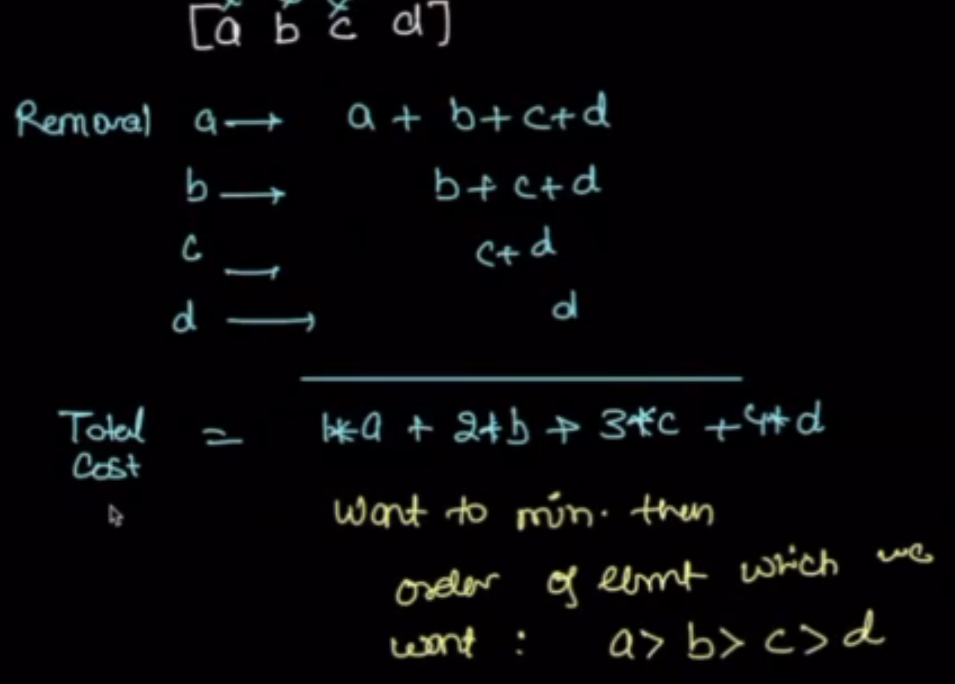 [a b c d]
Removal a → a + b + c + d
b → b + c + d
c → c + d
d → d
Total Cost = 1*a + 2*b + 3*c + 4*d
want to min. then
order of elmnt which we
want : a > b > c > d